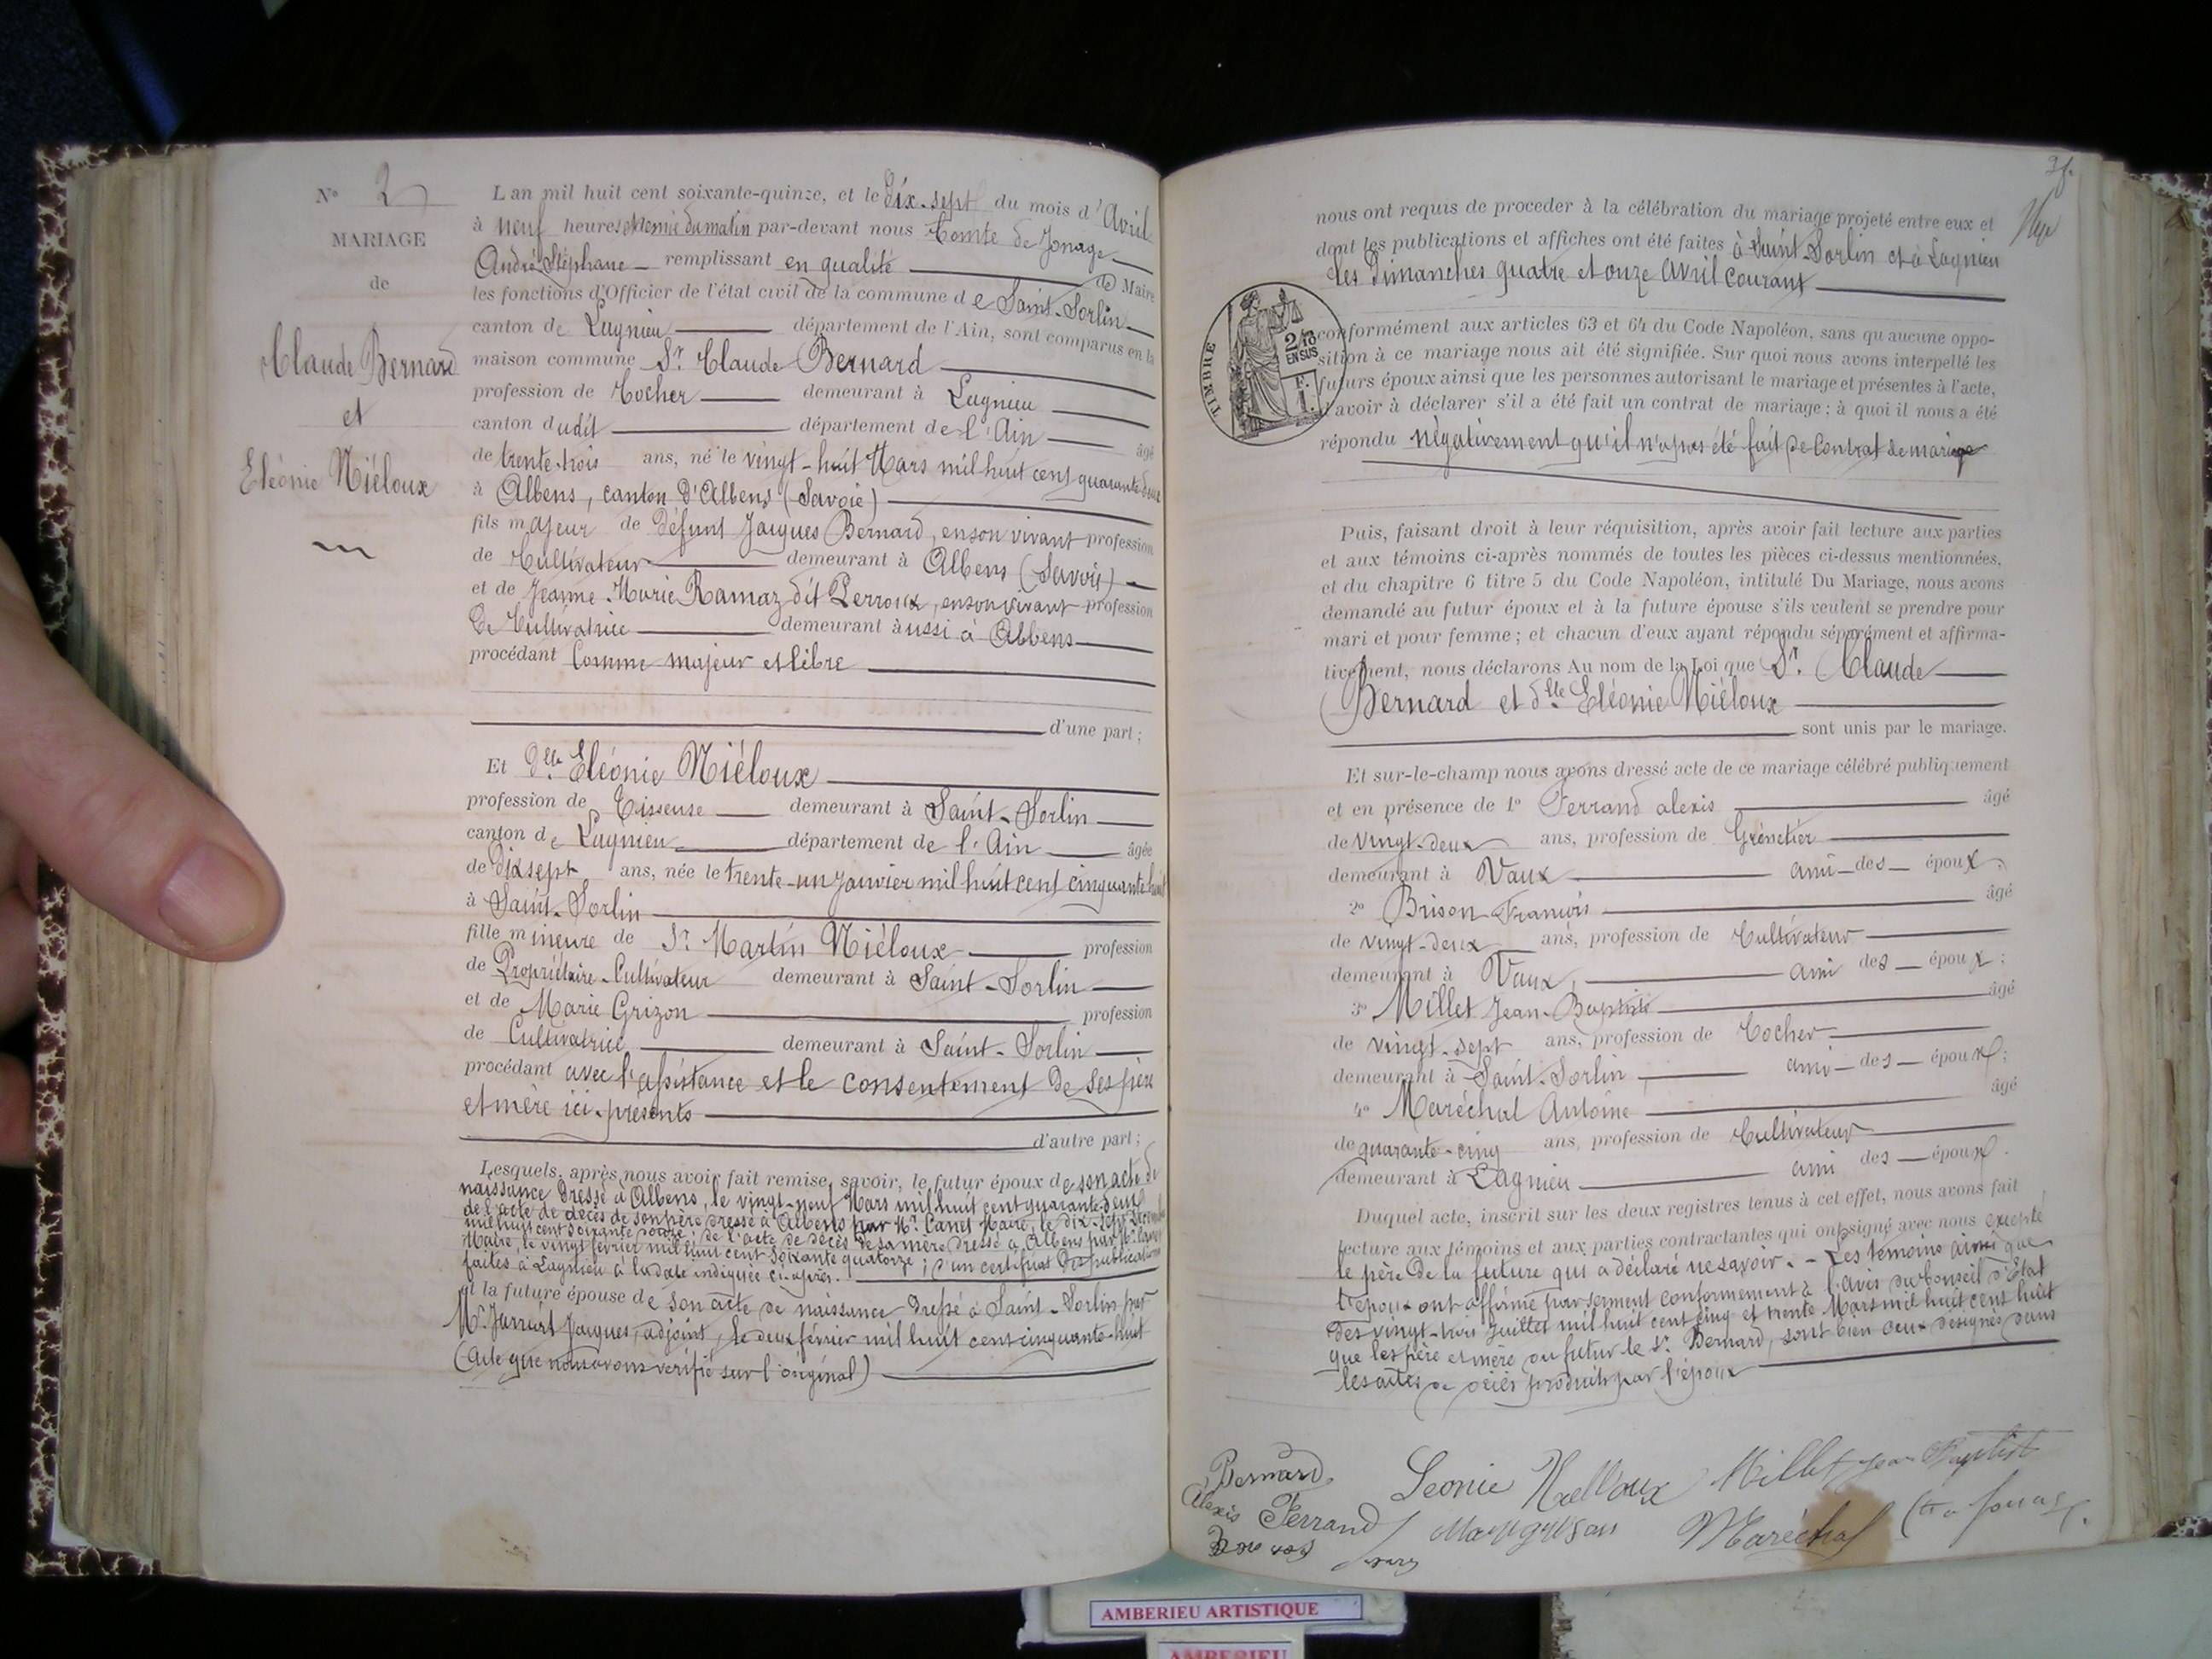 N° 2
MARIAGE
de
Claude Bernard
et
Eléonie Niéloux
L'an mil huit cent soixante-quinze, et le dix-sept du mois d'Avril
à neuf heures et demie du matin par-devant nous Comte de Jonage
André Stéphane remplissant en qualité de Maire
les fonctions d'Officier de l'état civil de la commune de Saint-Sorlin
canton de Lagnieu département de l'Ain, sont comparus en la
maison commune Sr. Claude Bernard
profession de Cocher demeurant à Lagnieu
canton dudit département de l'Ain âgé
de trente-trois ans, né le vingt-huit Mars mil huit cent quarante-deux
à Albens, canton d'Albens (Savoie)
fils majeur de défunt Jacques Bernard, en son vivant profession
de Cultivateur demeurant à Albens (Savoie)
et de Jeanne-Marie Ramaz dit Perroux, en son vivant profession
de Cultivatrice demeurant aussi à Albens
procédant Comme majeur et libre
d'une part;
Et dlle Eléonie Niéloux
profession de Tisseuse demeurant à Saint-Sorlin
canton de Lagnieu département de l'Ain âgée
de dix sept ans, née le trente-un Janvier mil huit cent cinquante huit
à Saint-Sorlin
fille mineure de Sr Martin Niéloux profession
de Propriétaire-Cultivateur demeurant à Saint-Sorlin
et de Marie Grizon profession
de Cultivatrice demeurant à Saint-Sorlin
procédant avec l'assistance et le consentement de ses père
et mère ici-présents
d'autre part;
Lesquels, après nous avoir fait remise, savoir, le futur époux de son acte de
naissance dressé à Albens, le vingt-neuf Mars mil huit cent quarante deux,
de l'acte de décès de son père dressé à Albens par Mr. Canet Maire, le dix-sept
mil huit cent soixante douze; de l'acte de décès de sa mère dressé à Albens par Mr. Canet
Maire, le vingt février mil huit cent soixante quatorze; d'un certificat des publications
faites à Lagnieu à la date indiquée ci-après.
et la future épouse de son acte de naissance dressé à Saint-Sorlin par
Mr. Jacques, adjoint, le deux février mil huit cent cinquante-huit
(acte que nous avons vérifié sur l'original)
nous ont requis de proceder à la célébration du mariage projeté entre eux et
dont les publications et affiches ont été faites à Saint-Sorlin et à Lagnieu
les Dimanches quatre et onze Avril Courant
TIMBRE
2/10
EN SUS
F.
1.
conformément aux articles 63 et 64 du Code Napoléon, sans qu'aucune oppo-
sition à ce mariage nous ait été signifiée. Sur quoi nous avons interpellé les
futurs époux ainsi que les personnes autorisant le mariage et présentes à l'acte,
d'avoir à déclarer s'il a été fait un contrat de mariage; à quoi il nous a été
répondu négativement qu'il n'a pas été fait de Contrat de mariage
Puis, faisant droit à leur réquisition, après avoir fait lecture aux parties
et aux témoins ci-après nommés de toutes les pièces ci-dessus mentionnées,
et du chapitre 6 titre 5 du Code Napoléon, intitulé Du Mariage, nous avons
demandé au futur époux et à la future épouse s'ils veulent se prendre pour
mari et pour femme; et chacun d'eux ayant répondu séparément et affirma-
tivement, nous déclarons Au nom de la Loi que Sr. Claude
Bernard et dlle Eléonie Niéloux
sont unis par le mariage.
Et sur-le-champ nous avons dressé acte de ce mariage célébré publiquement
et en présence de 1° Ferrand alexis âgé
de vingt-deux ans, profession de Grènetier
demeurant à Vaux ami des époux;
2° Brison François âgé
de vingt-deux ans, profession de Cultivateur
demeurant à Vaux, ami des époux;
3° Millet Jean-Baptiste âgé
de vingt-sept ans, profession de Cocher
demeurant à Saint-Sorlin ami des époux;
4° Maréchal Antoine âgé
de quarante-cinq ans, profession de Cultivateur
demeurant à Lagnieu ami des époux.
Duquel acte, inscrit sur les deux registres tenus à cet effet, nous avons fait
lecture aux témoins et aux parties contractantes qui ont signé avec nous excepté
le père de la future qui a déclaré ne savoir. - Les témoins ainsi que
l'époux ont affirmé par serment conformément à l'avis du Conseil d'Etat
des vingt-trois Juillet mil huit cent cinq et trente Mars mil huit cent huit
que les père et mère du futur le Sr. Bernard, sont bien ceux désignés dans
les actes de décès produits par l'époux
Bernard Leonie Nielloux Millet Jean Baptist
Alexis Ferrand Maréchal
AMBERIEU ARTISTIQUE
AMBERIEU